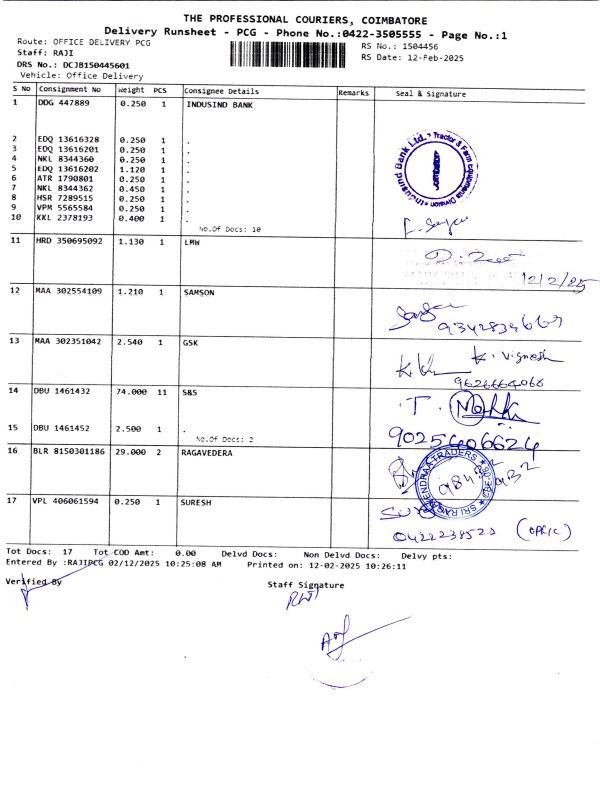 THE PROFESSIONAL COURIERS, COIMBATORE
Delivery Runsheet - PCG - Phone No.:0422-3505555 - Page No.:1
Route: OFFICE DELIVERY PCG RS No.: 1504456
Staff: RAJI RS Date: 12-Feb-2025
DRS No.: DCJB150445601
Vehicle: Office Delivery
S No Consignment No Weight PCS Consignee Details Remarks Seal & Signature
1 DDG 447889 0.250 1 INDUSIND BANK
2 EDQ 13616328 0.250 1 .
3 EDQ 13616201 0.250 1 .
4 NKL 8344360 0.250 1 .
5 EDQ 13616202 1.120 1 .
6 ATR 1790801 0.250 1 .
7 NKL 8344362 0.450 1 .
8 HSR 7289515 0.250 1 .
9 VPM 5565584 0.250 1 .
10 KKL 2378193 0.400 1 .
No.Of Docs: 10
11 HRD 350695092 1.130 1 LMW
12/2/25
12 MAA 302554109 1.210 1 SAMSON
13 MAA 302351042 2.540 1 GSK
K. Vignesh
9626664066
14 DBU 1461432 74.000 11 S&S
T.
15 DBU 1461452 2.500 1 .
No.Of Docs: 2
9025406624
16 BLR 8150301186 29.000 2 RAGAVEDERA
17 VPL 406061594 0.250 1 SURESH
Tot Docs: 17 Tot COD Amt: 0.00 Delvd Docs: Non Delvd Docs: Delvy pts:
Entered By :RAJIPCG 02/12/2025 10:25:08 AM Printed on: 12-02-2025 10:26:11
Verified By Staff Signature